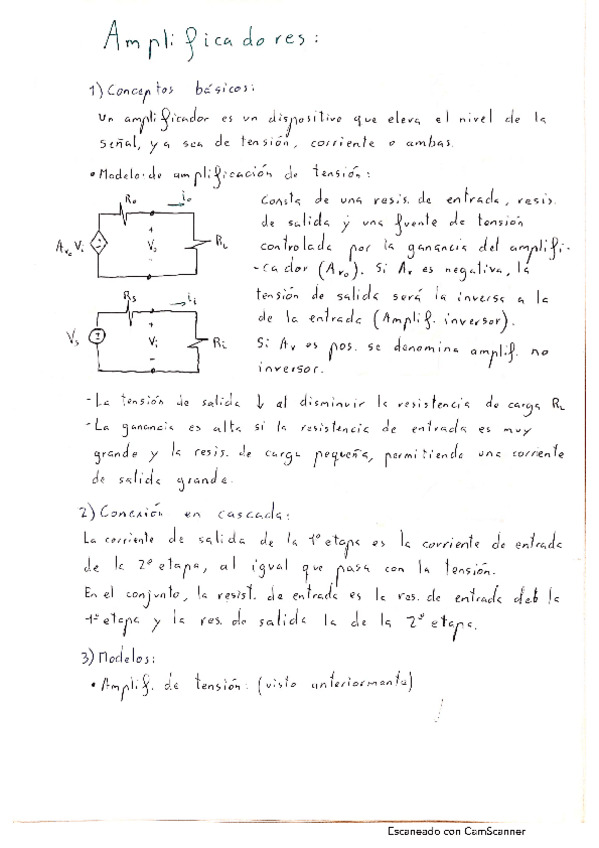 Amplificadores:
1) Conceptos básicos:
Un amplificador es un dispositivo que eleva el nivel de la
señal, ya sea de tensión, corriente o ambas.
• Modelo de amplificación de tensión:
Ro
io
Avo Vi
+
Vo
-
RL
Rs
ii
Vs
+
Vi
-
Ri
Consta de una resis. de entrada, resis.
de salida y una fuente de tensión
controlada por la ganancia del amplifi-
-cador (Avo). Si Av es negativa, la
tensión de salida será la inversa a la
de la entrada (Amplif. inversor).
Si Av es pos. se denomina amplif. no
inversor.
- La tensión de salida ↓ al disminuir la resistencia de carga RL
- La ganancia es alta si la resistencia de entrada es muy
grande y la resis. de carga pequeña, permitiendo una corriente
de salida grande.
2) Conexión en cascada:
La corriente de salida de la 1º etapa es la corriente de entrada
de la 2º etapa, al igual que pasa con la tensión.
En el conjunto, la resist. de entrada es la res. de entrada de la
1º etapa y la res. de salida la de la 2º etapa.
3) Modelos:
• Amplif. de tensión: (visto anteriormente)
Escaneado con CamScanner